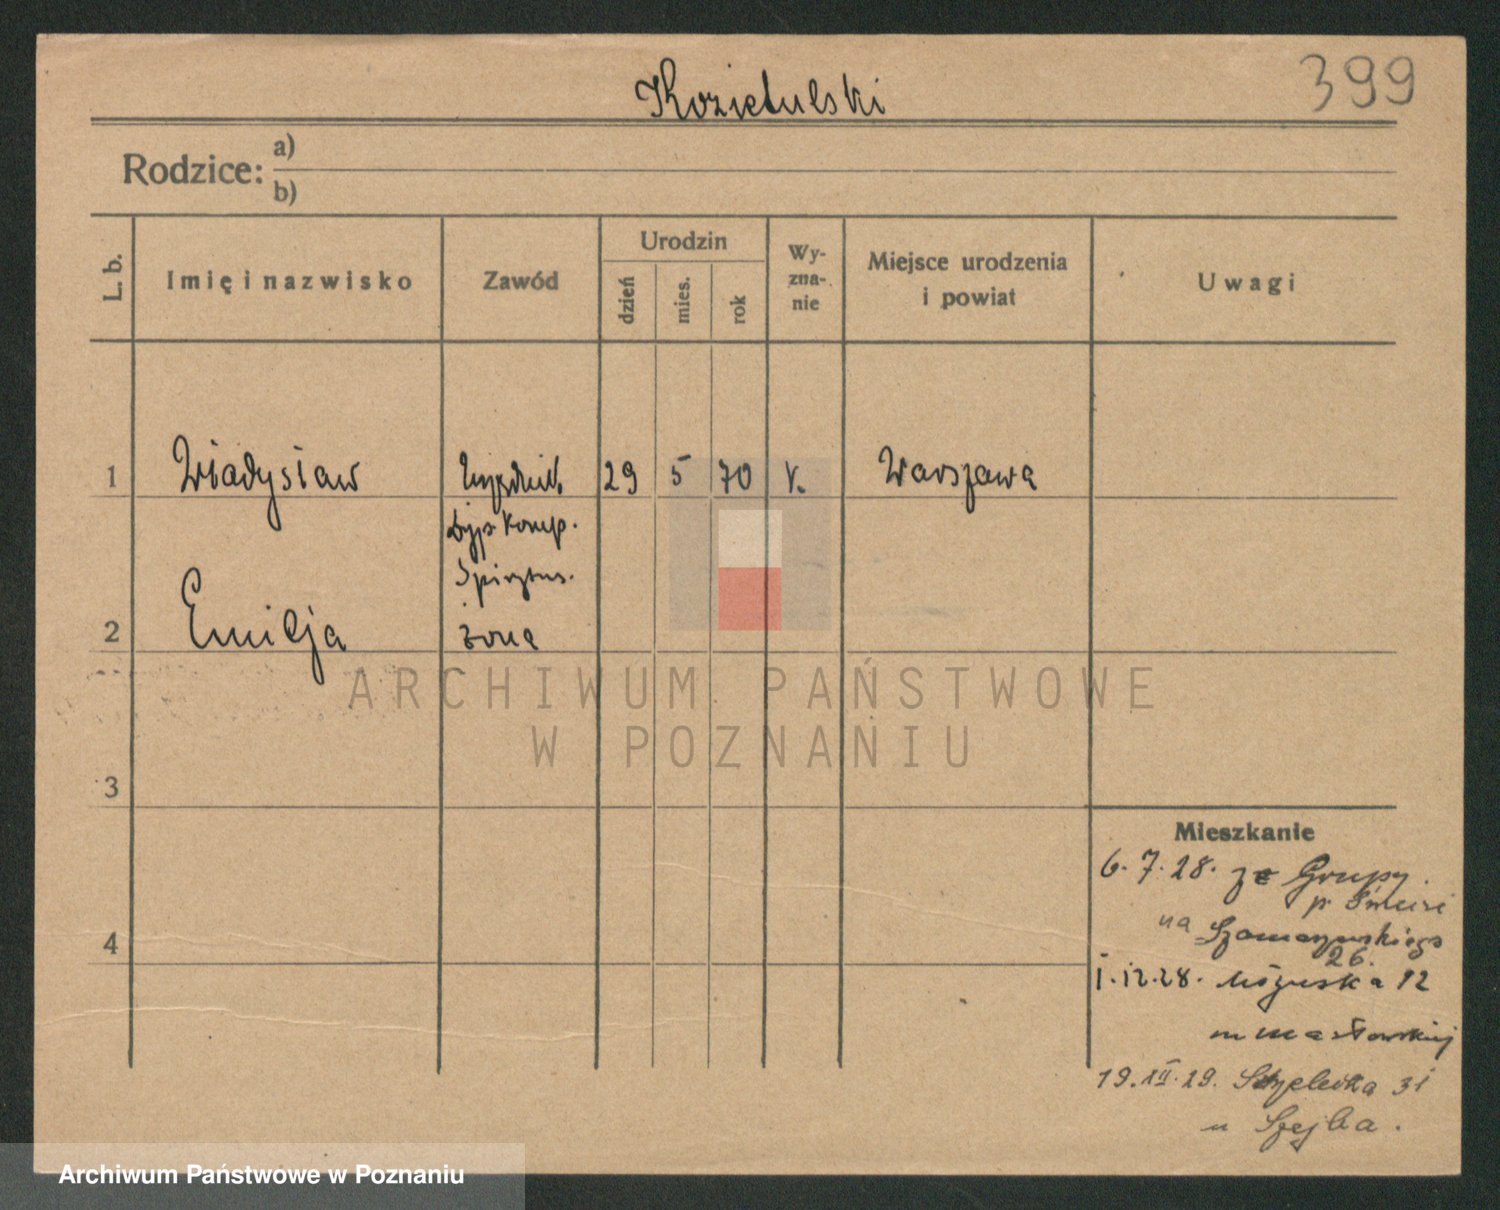 Kozietulski
399
Rodzice: a)
b)
L. b.
Imię i nazwisko
Zawód
Urodzin
dzień
mies.
rok
Wy-
zna-
nie
Miejsce urodzenia
i powiat
Uwagi
1 Władysław 29 5 70 Warszawa
komp.
Spirytus.
2 Emilja żona
3
4
Mieszkanie
6.7.28. ze Grupy
na
26.
1.12.28. 12
19.XII.29. Strzelecka 31
u Szejba.
ARCHIWUM PAŃSTWOWE
W POZNANIU
Archiwum Państwowe w Poznaniu